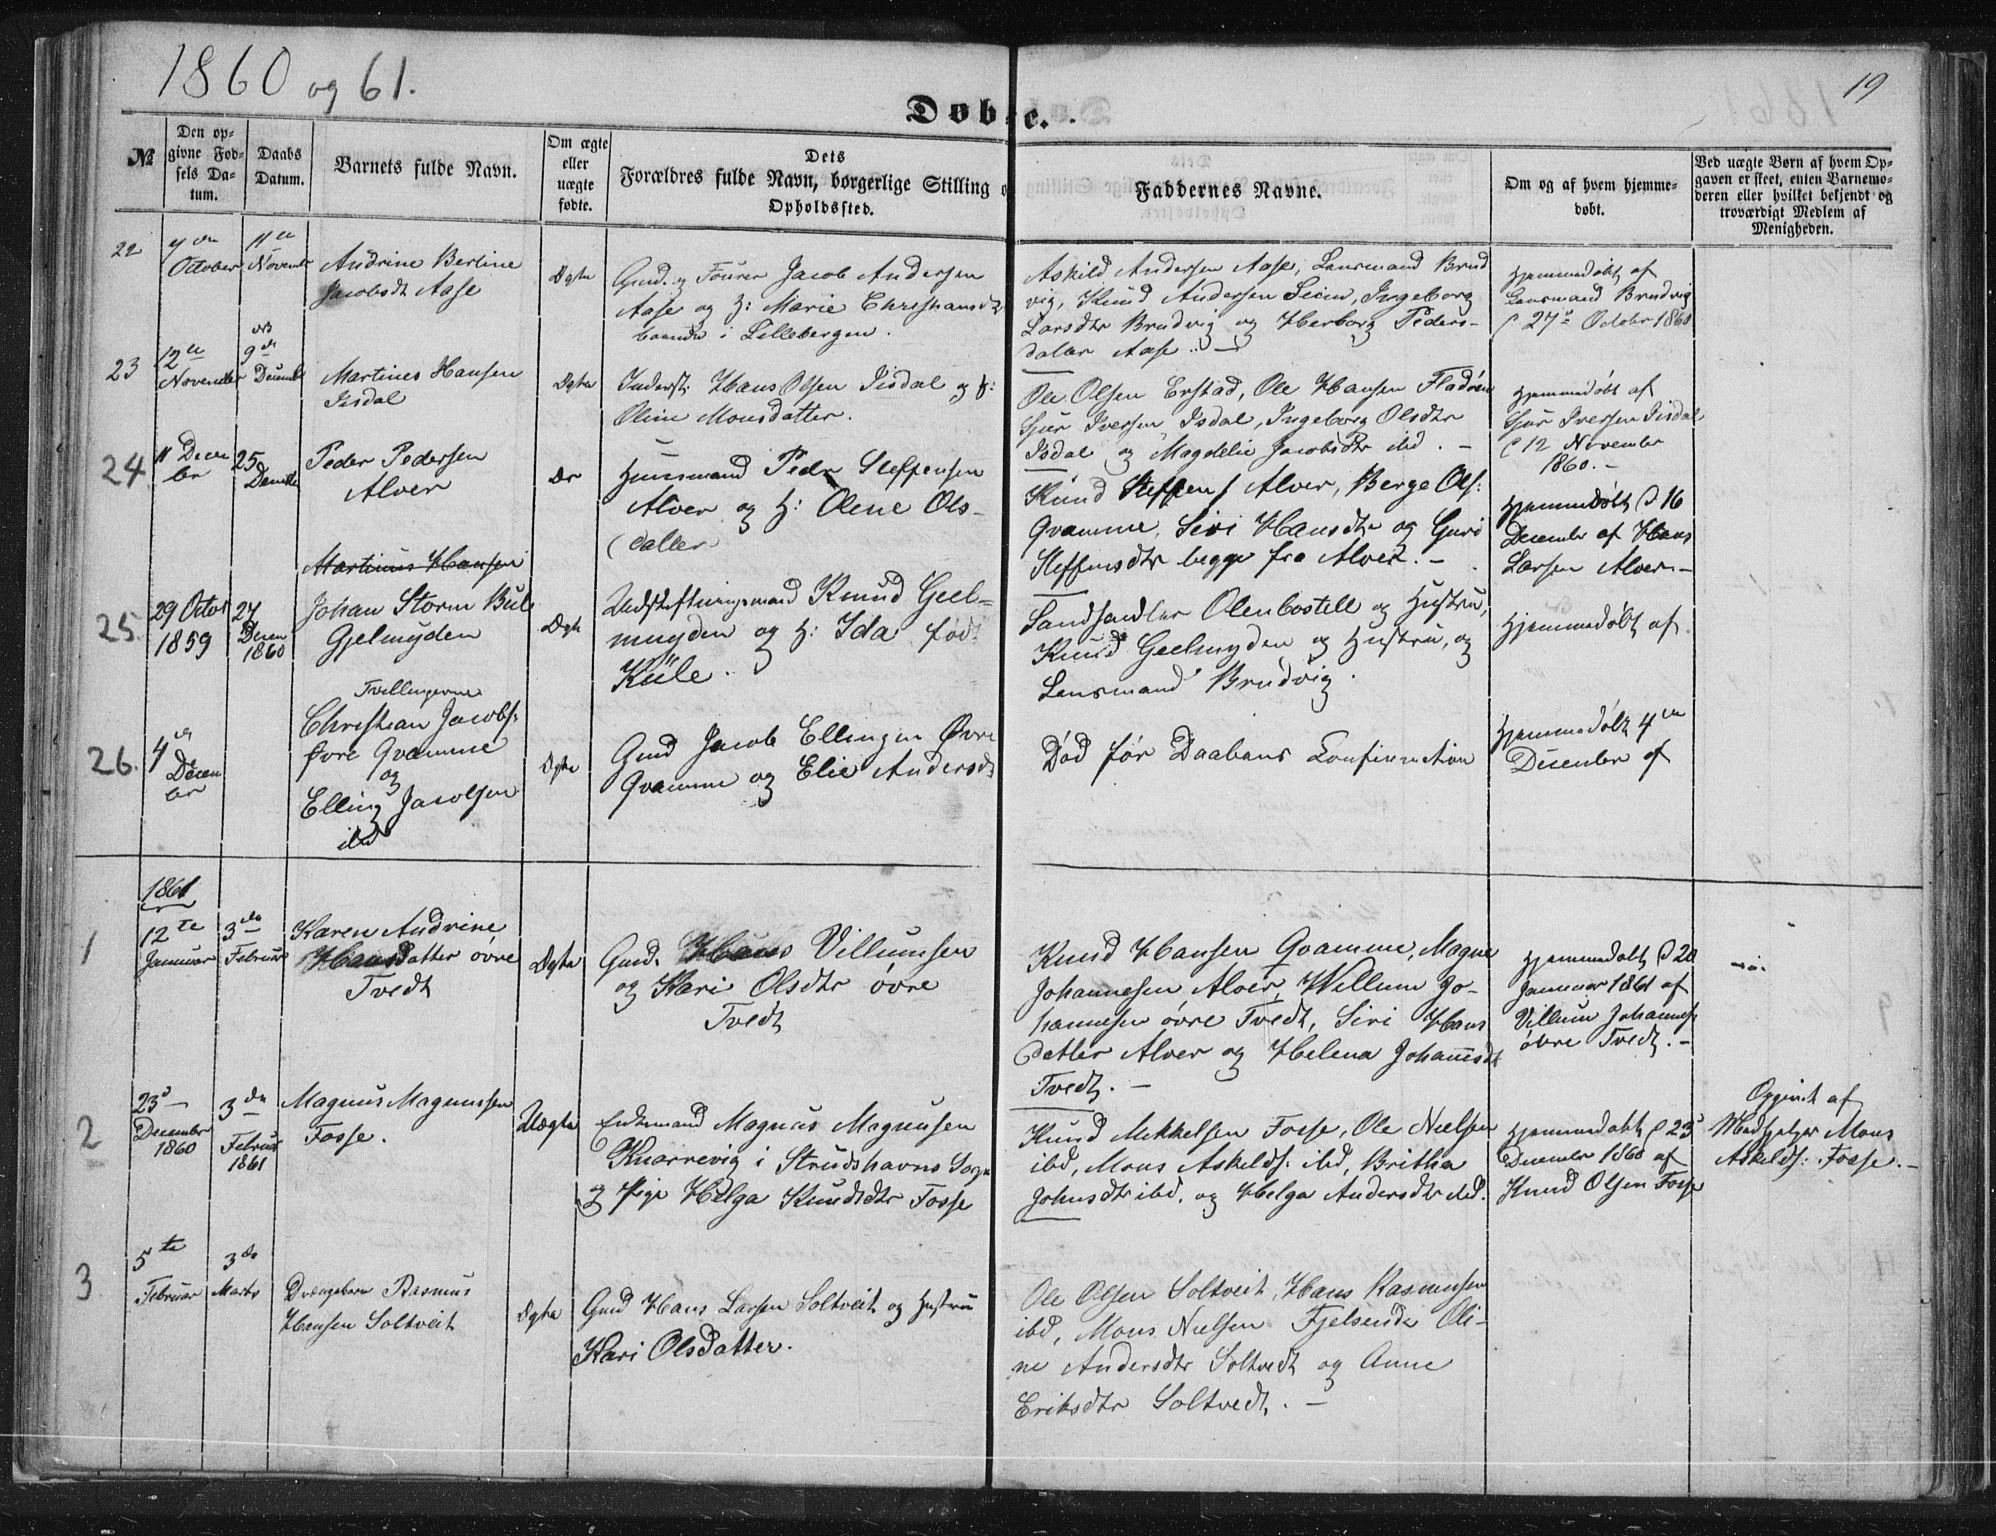 1860 og 61.
19
Døbte.
№
Den op-
givne Fød-
sels Da-
tum.
Daabs
Datum.
Barnets fulde Navn.
Om ægte
eller
uægte
fødte.
Dets
Forældres fulde Navn, borgerlige Stilling o
Opholdssted.
Faddernes Navne.
Om og af hvem hjemme-
døbt.
Ved uægte Børn af hvem Op-
gaven er skeet, enten Barnemo-
deren eller hvilket bekjendt og
troværdigt Medlem af
Menigheden.
22
October
11te
Novembr
Andrine Berline
Jacobsdt Aase
Ægte
Gmd. og Fourer Jacob Andersen
Aase og H: Marie Christiansdt
boende i Lillebergen.
Askild Andersen Aase, Lensmand Brud
vig, Knud Andersen Seim, Ingeborg
Larsdtr Brudvig og Herborg Peders-
datter Aase. —
Hjemmedøbt af
Lensmand Brudvig
27de October 1860
23
12te
November
9de
Decembr
Martines Hansen
Isdal
Ægte
Inderst: Hans Olsen Isdal og H:
Oline Monsdatter.
Ole Olsen Erstad, Ole Hansen Fladøen
Sjur Iversen Isdal, Ingeborg Olsdtr
Isdal og Magdelie Jacobsdtr ibd. —
Hjemmedøbt af
Sjur Iversen Isdal
d 12 November
1860. —
24.
11 Decem
ber
25
Decembr
Peder Pedersen
Alver
Huusmand Pedr Steffensen
Alver og H: Olene Ols-
datter
Knud Steffens Alver, Berge Ols:
Qvamme, Siri Hansdtr og Guri
Steffensdtr begge fra Alver. —
Hjemmedøbt d 16
December af Hans
Larsen Alver. —
Martinus Hansen
25.
29 Octor
1859
27
Decem
1860
Johan Storm Bull
Gjelmyden
Ægte
Udskiftningsmand Knud Geel-
muyden og H: Ida fød:
Küle.
Landhandler Olenbostell og Hustru,
Knud Geelmyden og Hustru, og
Lensmand Brudvig.
Hjemmedøbt af
26.
4de
Decem
ber
Tvillingerne
Christian Jacobs:
Øvre Qvamme
og
Elling Jacobsen
ibd
Ægte
Gmd Jacob Ellingsen Øvre
Qvamme og Elie Andersdt
Død før Daabens Confirmation
Hjemmedøbt 4de
December af
1861
1
12te
Januar
3die
Februar
Karen Andrine
Hansdatter øvre
Tvedt
Ægte
Gmd. Hans Villumsen
og Kari Olsdtr øvre
Tvedt
Knud Hansen Qvamme, Magne
Johannesen Alver, Willum Jo-
hannesen øvre Tvedt, Siri Hans
datter Alver og Helena Johannesdt
Tvedt. —
Hjemmedøbt d 20
Januar 1861 af
Villum Johannes:
øvre Tvedt. —
2
23d
December
1860
3die
Februar
1861
Magnus Magnussen
Fosse.
Uægte
Enkemand Magnus Magnusen
Knarrevig i Strudshavns Sogn
og Pige Helga Knudsdtr Fosse
Knud Mikkelsen Fosse, Ole Nielsen
ibd, Mons Askelds: ibd, Britha
Johnsdtr ibd, og Helga Andersdtr ibd.
Hjemmedøbt d 25
December 1860 af
Knud Olsen Fosse
Opgivet af
Medhjelper Mons
Askelds: Fosse. —
3
5te
Februar
3die
Marts
Drengebarn Rasmus
Hansen Soltveit
Ægte
Gmd Hans Larsen Soltveit og Hustru
Kari Olsdatter.
Ole Olsen Soltveit, Hans Rasmusen
ibd, Mons Nielsen Fjelsende Oli-
ne Andersdtr Soltvedt og Anne
Eriksdtr Soltvedt. —